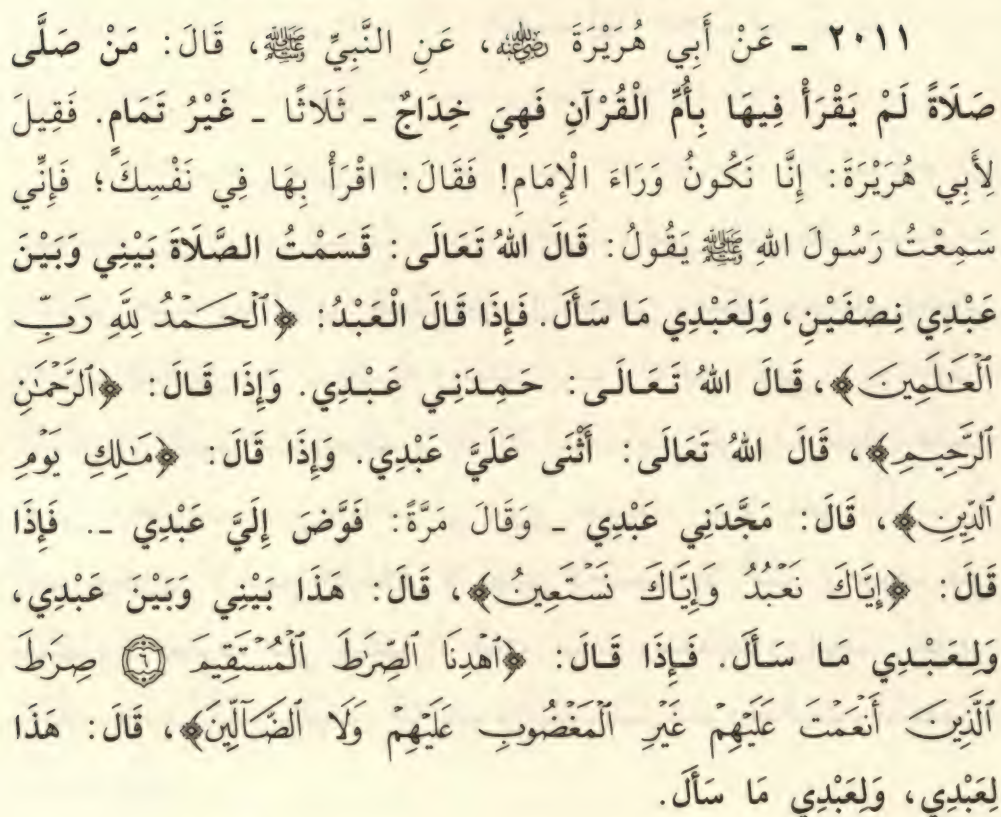 ٢٠١١ - عَنْ أَبِي هُرَيْرَةَ رضي الله عنه، عَنِ النَّبِيِّ ﷺ، قَالَ: مَنْ صَلَّى
صَلَاةً لَمْ يَقْرَأْ فِيهَا بِأُمِّ الْقُرْآنِ فَهِيَ خِدَاجٌ - ثَلَاثًا - غَيْرُ تَمَامٍ. فَقِيلَ
لِأَبِي هُرَيْرَةَ: إِنَّا نَكُونُ وَرَاءَ الْإِمَامِ! فَقَالَ: اقْرَأْ بِهَا فِي نَفْسِكَ؛ فَإِنِّي
سَمِعْتُ رَسُولَ اللهِ ﷺ يَقُولُ: قَالَ اللهُ تَعَالَى: قَسَمْتُ الصَّلَاةَ بَيْنِي وَبَيْنَ
عَبْدِي نِصْفَيْنِ، وَلِعَبْدِي مَا سَأَلَ. فَإِذَا قَالَ الْعَبْدُ: ﴿ٱلْحَمْدُ لِلَّهِ رَبِّ
ٱلْعَٰلَمِينَ﴾، قَالَ اللهُ تَعَالَى: حَمِدَنِي عَبْدِي. وَإِذَا قَالَ: ﴿ٱلرَّحْمَٰنِ
ٱلرَّحِيمِ﴾، قَالَ اللهُ تَعَالَى: أَثْنَى عَلَيَّ عَبْدِي. وَإِذَا قَالَ: ﴿مَٰلِكِ يَوْمِ
ٱلدِّينِ﴾، قَالَ: مَجَّدَنِي عَبْدِي - وَقَالَ مَرَّةً: فَوَّضَ إِلَيَّ عَبْدِي -. فَإِذَا
قَالَ: ﴿إِيَّاكَ نَعْبُدُ وَإِيَّاكَ نَسْتَعِينُ﴾، قَالَ: هَذَا بَيْنِي وَبَيْنَ عَبْدِي،
وَلِعَبْدِي مَا سَأَلَ. فَإِذَا قَالَ: ﴿ٱهْدِنَا ٱلصِّرَٰطَ ٱلْمُسْتَقِيمَ ۝٦ صِرَٰطَ
ٱلَّذِينَ أَنْعَمْتَ عَلَيْهِمْ غَيْرِ ٱلْمَغْضُوبِ عَلَيْهِمْ وَلَا ٱلضَّآلِّينَ﴾، قَالَ: هَذَا
لِعَبْدِي، وَلِعَبْدِي مَا سَأَلَ.